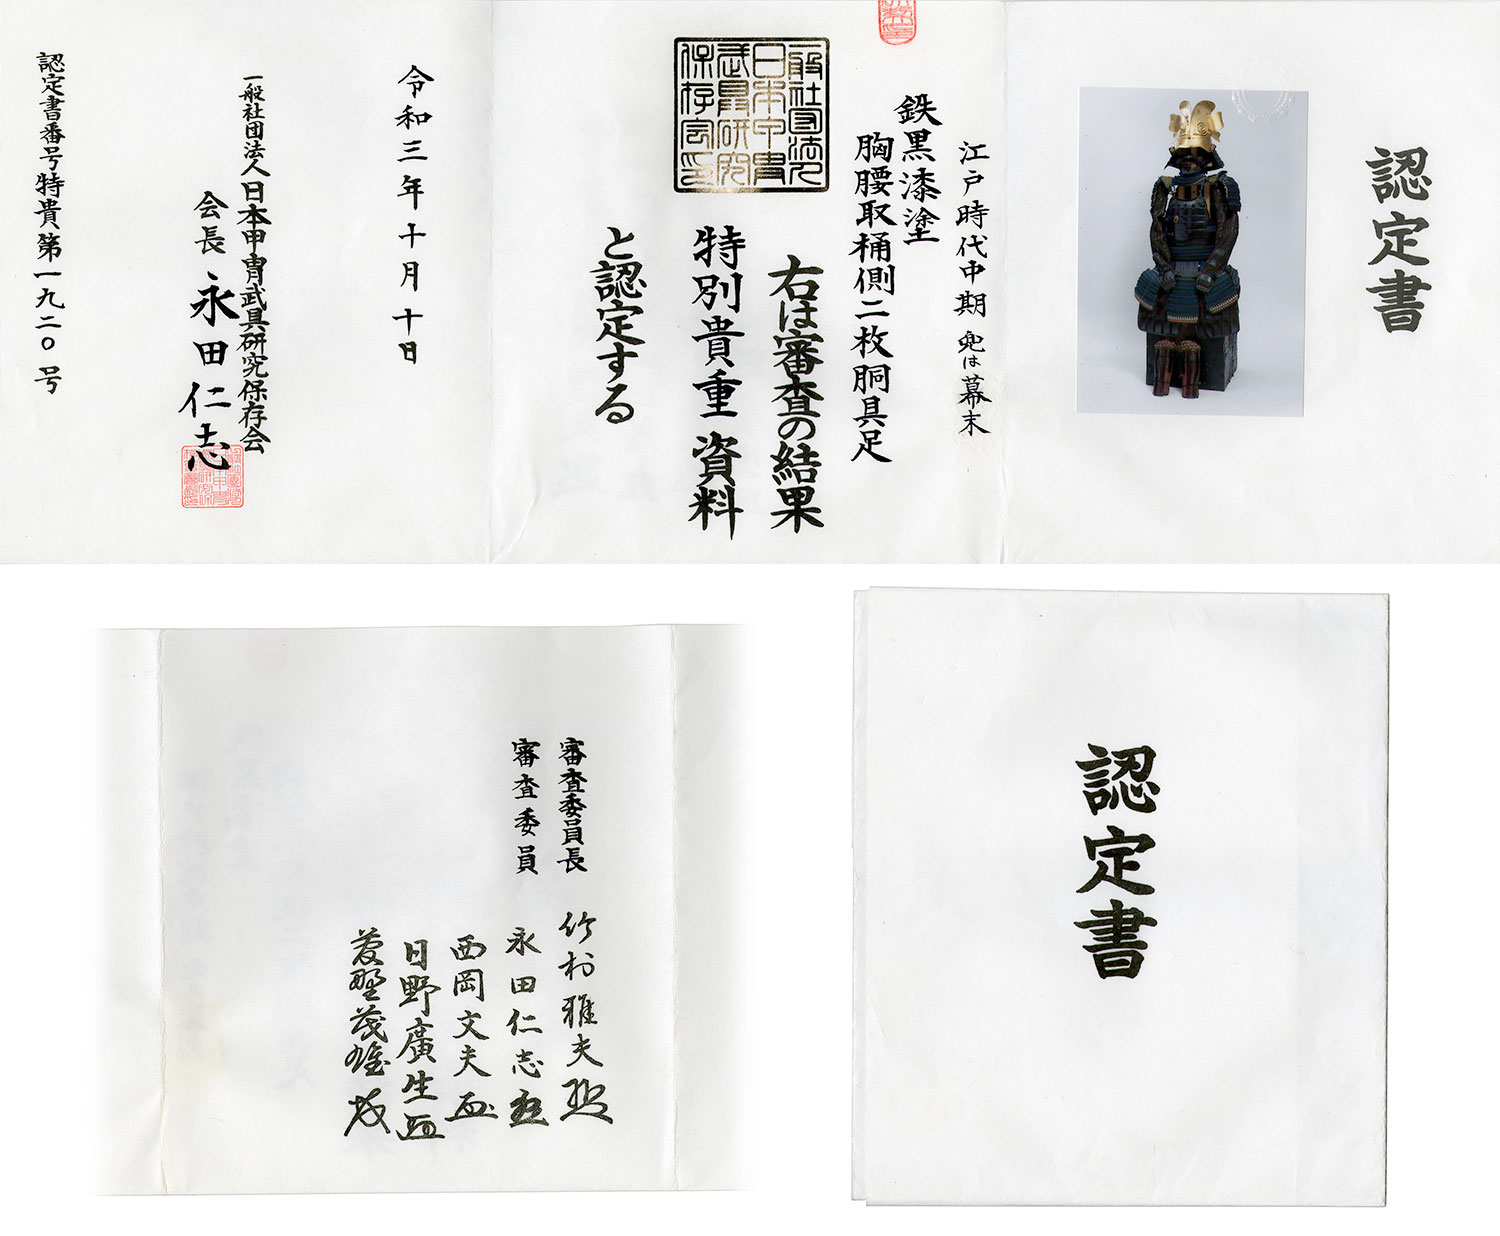 認定書
江戸時代中期 兜は幕末
鉄黒漆塗
胸腰取桶側二枚胴具足
右は審査の結果
特別貴重資料
と認定する
一般社団法人
日本甲冑
武具研究
保存会印
令和三年十月十日
一般社団法人日本甲冑武具研究保存会
会長 永田仁志
認定書番号特貴第一九二〇号
審査委員長 竹村雅夫
審査委員 永田仁志
西岡文夫
日野廣生
菱野茂雄
認定書